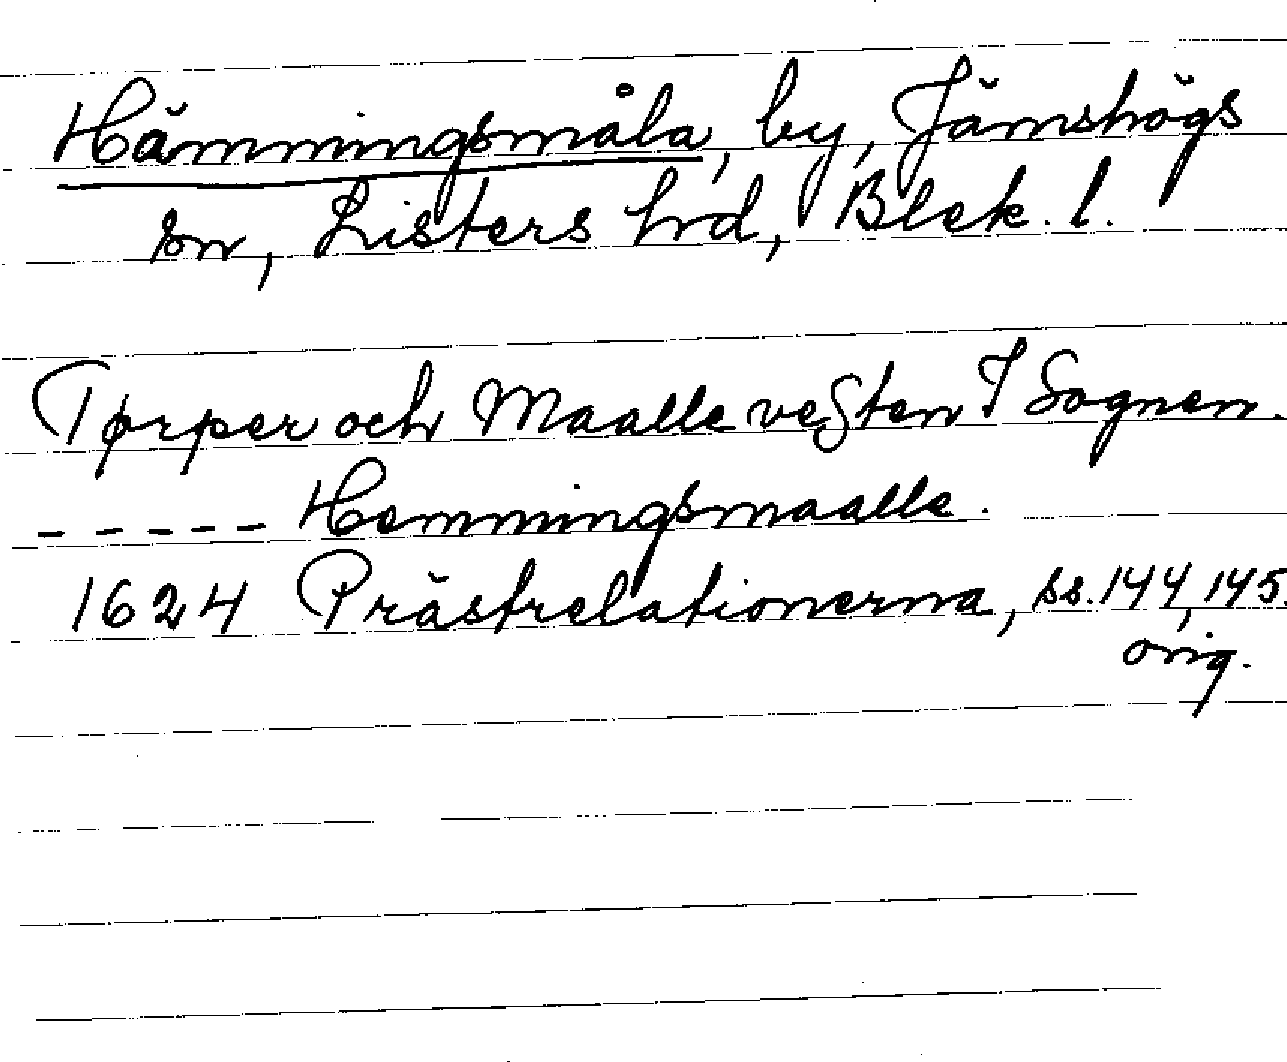 Hämmingsmåla, by, Jämshögs
sn, Listers hrd, Blek. l.
Tørper och Maalle vesten I Sognen.
- - - - - Hemmingsmaalle.
1624 Prästrelationerna, ss. 144, 145.
orig.